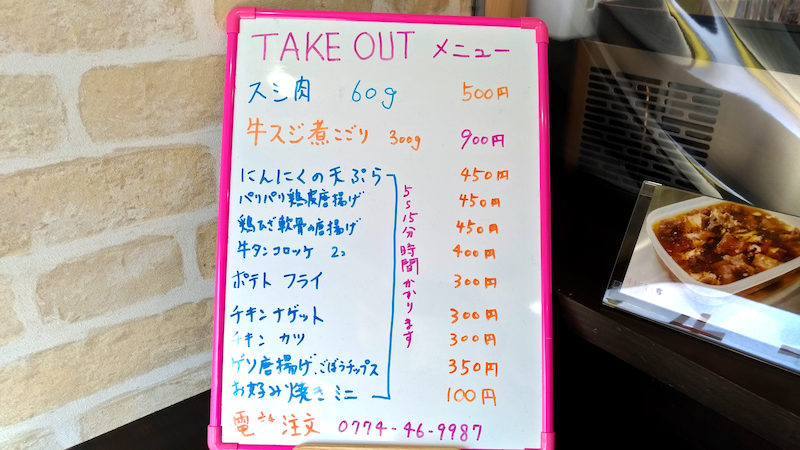 TAKE OUT メニュー
スジ肉 60g 500円
牛スジ煮こごり 300g 900円
にんにくの天ぷら 450円
パリパリ鶏皮唐揚げ 450円
鶏ひざ軟骨の唐揚げ 450円
牛タンコロッケ 2コ 400円
ポテト フライ 300円
チキンナゲット 300円
チキン カツ 300円
ゲソ唐揚げ、ごぼうチップス 350円
お好み焼き ミニ 100円
5〜15分時間かかります
電話注文 0774-46-9987